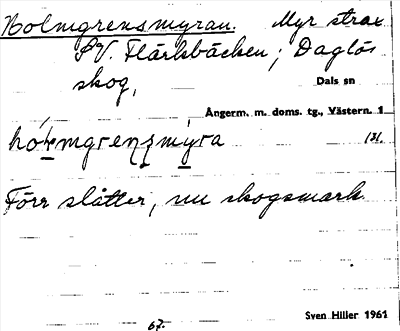 Holmgrensmyran. Myr strax
SV. Flärkbäcken; Daglös
skog,
Dals sn
Ångerm. m. doms. tg., Västern. 1
131.
Förr slåtter, nu skogsmark.
Sven Hiller 1961
67.